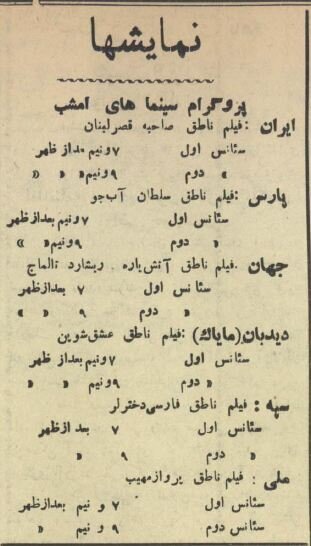 نمایشها
پروگرام سینما های امشب
ایران : فیلم ناطق صاحبه قصر لبنان
سئانس اول ۷ ونیم بعداز ظهر
» دوم ۹ ونیم » »
پارس : فیلم ناطق سلطان آب جو
سئانس اول ۷ ونیم بعدازظهر
» دوم ۹ ونیم »
جهان . فیلم ناطق آتش پاره . ریشارد تالماج
سئانس اول ۷ بعدازظهر
» دوم ۹ » »
دیدبان (مایاک) : فیلم ناطق عشق شوپن
سئانس اول ۷ ونیم بعداز ظهر
» دوم ۹ ونیم » »
سپه : فیلم ناطق فارسی دختر لر
سئانس اول ۷ بعد ازظهر
» دوم ۹ »
ملی : فیلم ناطق پرواز مهیب
سئانس اول ۷ و نیم بعدازظهر
سئانس دوم ۹ و نیم »